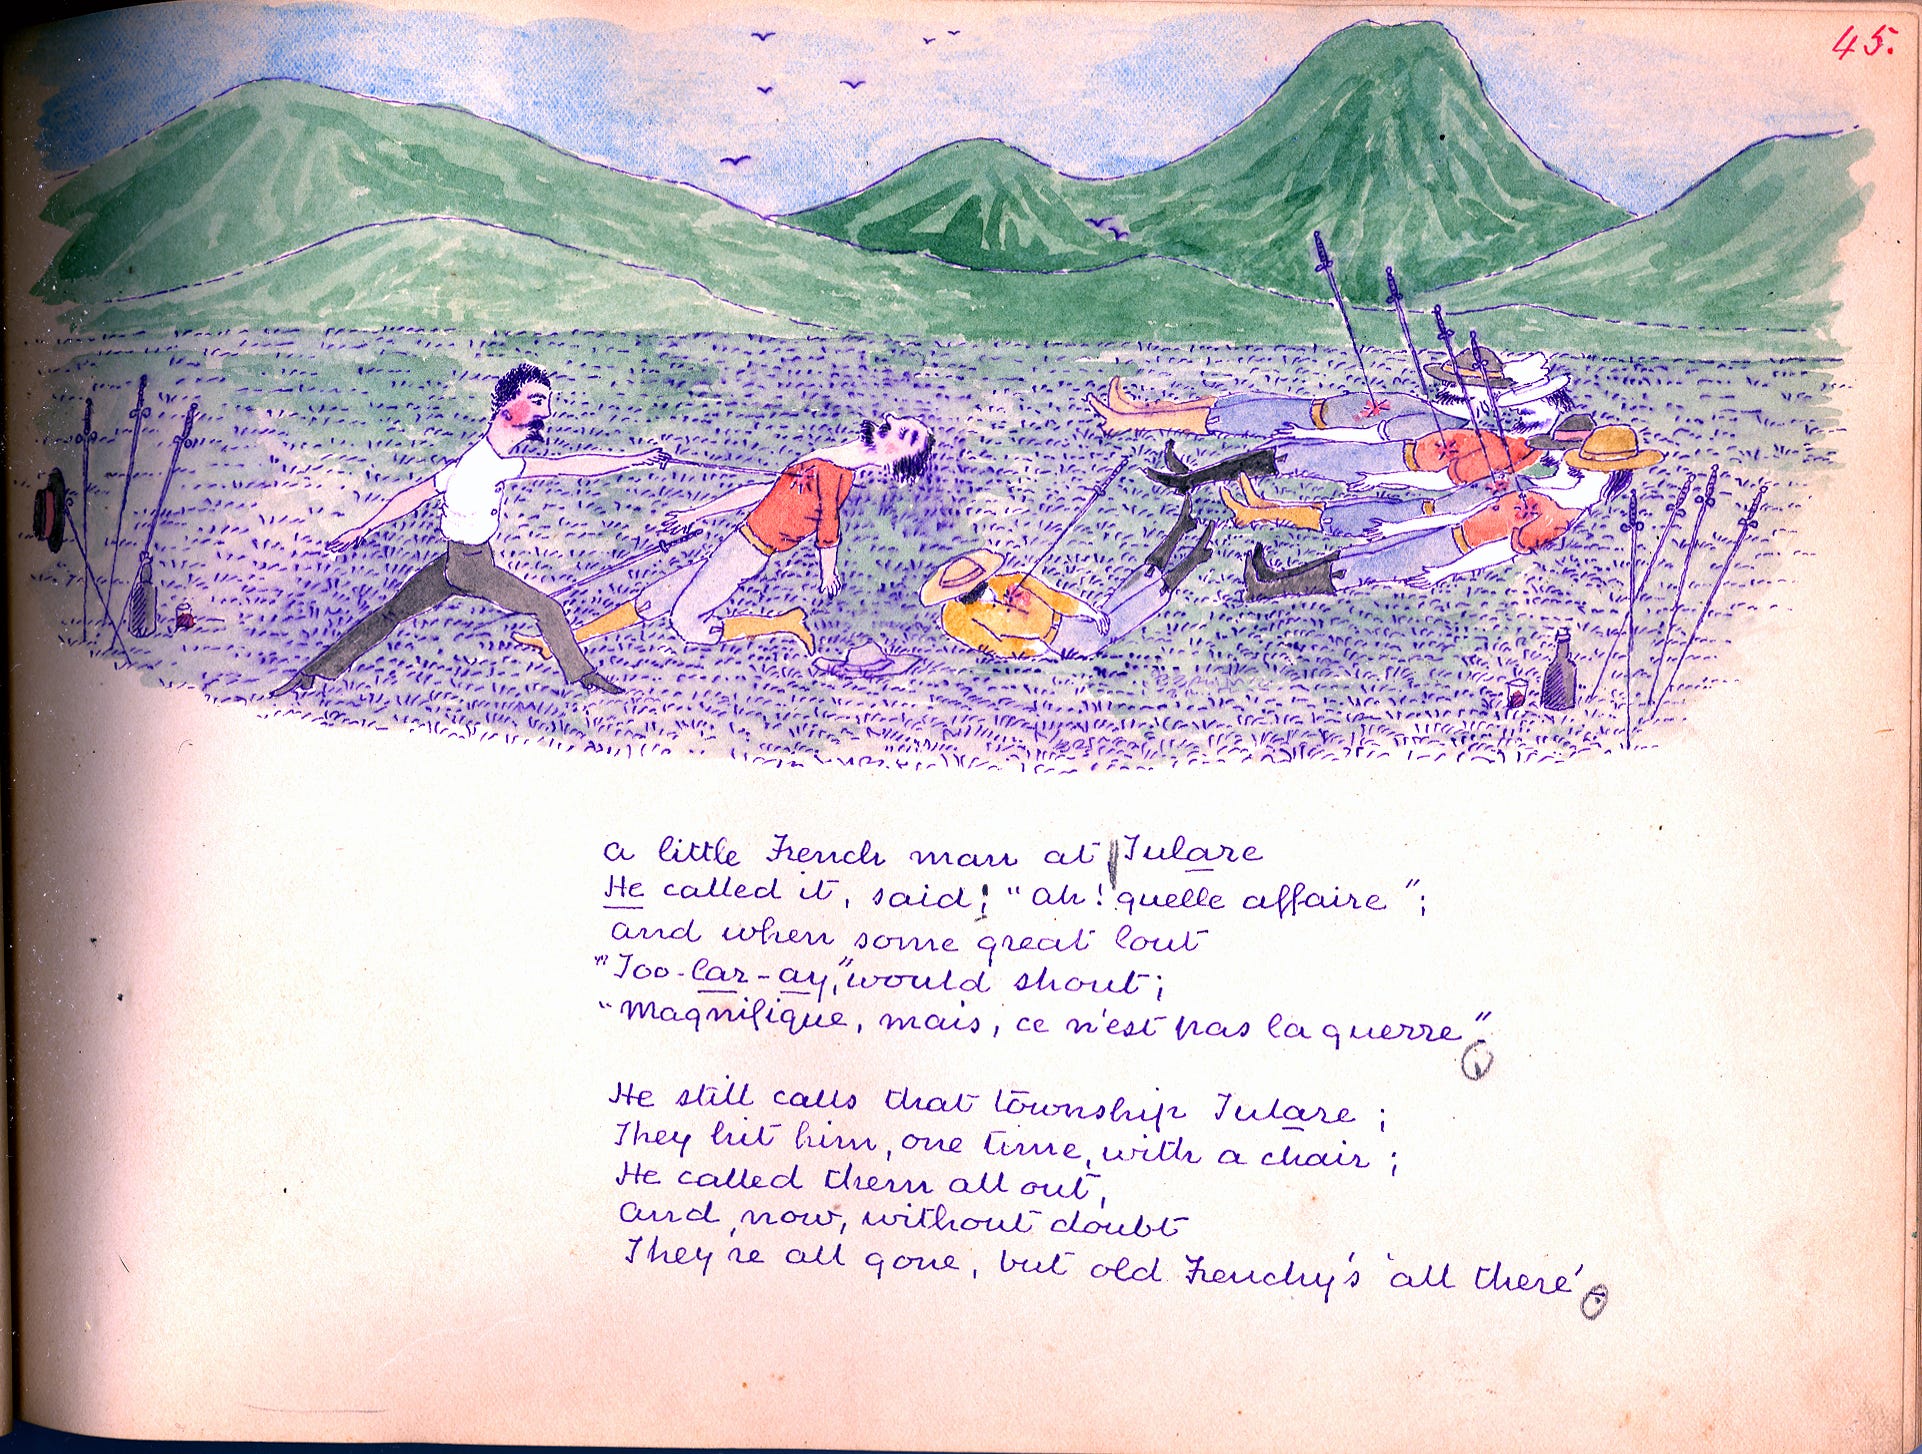 45.
a little French man at Tulare
He called it, said; "ah! quelle affaire";
and when some great lout
"Too-lar-ay," would shout;
"Magnifique, mais, ce n'est pas la guerre".

He still calls that township Tulare;
They hit him, one time, with a chair;
He called them all out,
and, now, without doubt
They're all gone, but old Frenchy's 'all there'.